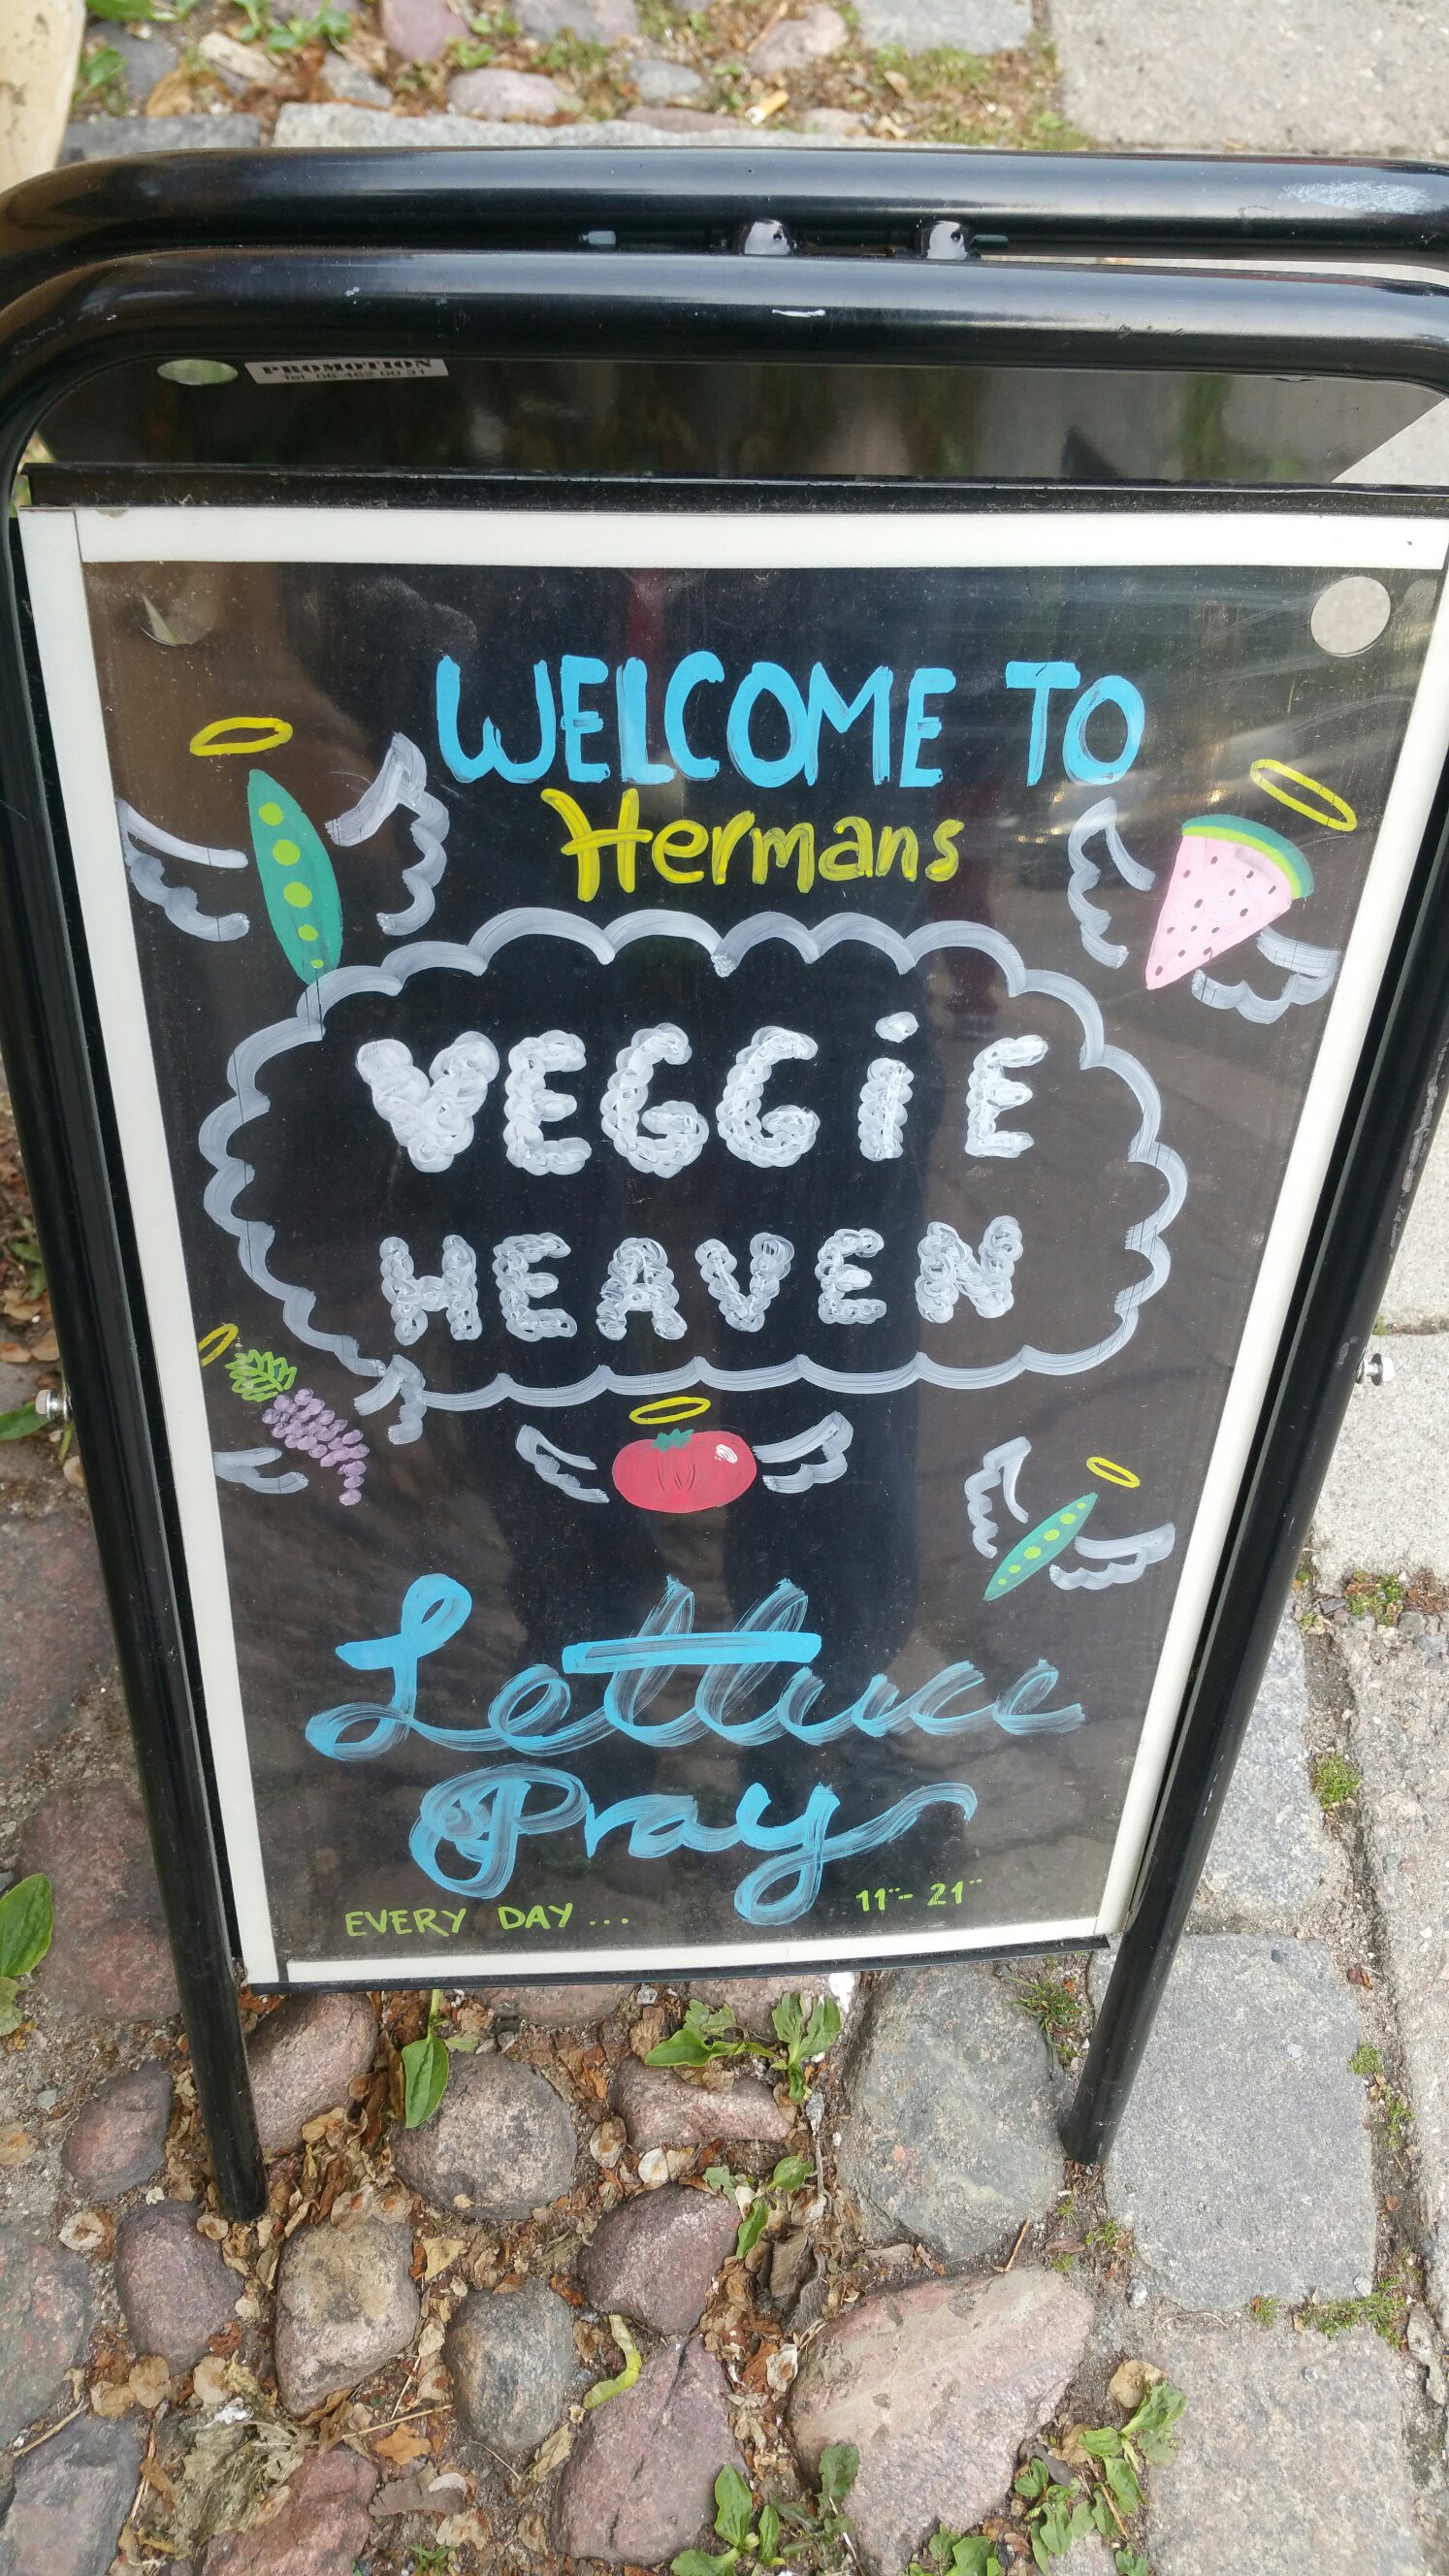 PROMOTION
Tel. 08-462 00 31
WELCOME TO
Hermans
VEGGiE
HEAVEN
Lettuce
Pray
EVERY DAY... 11¨- 21¨